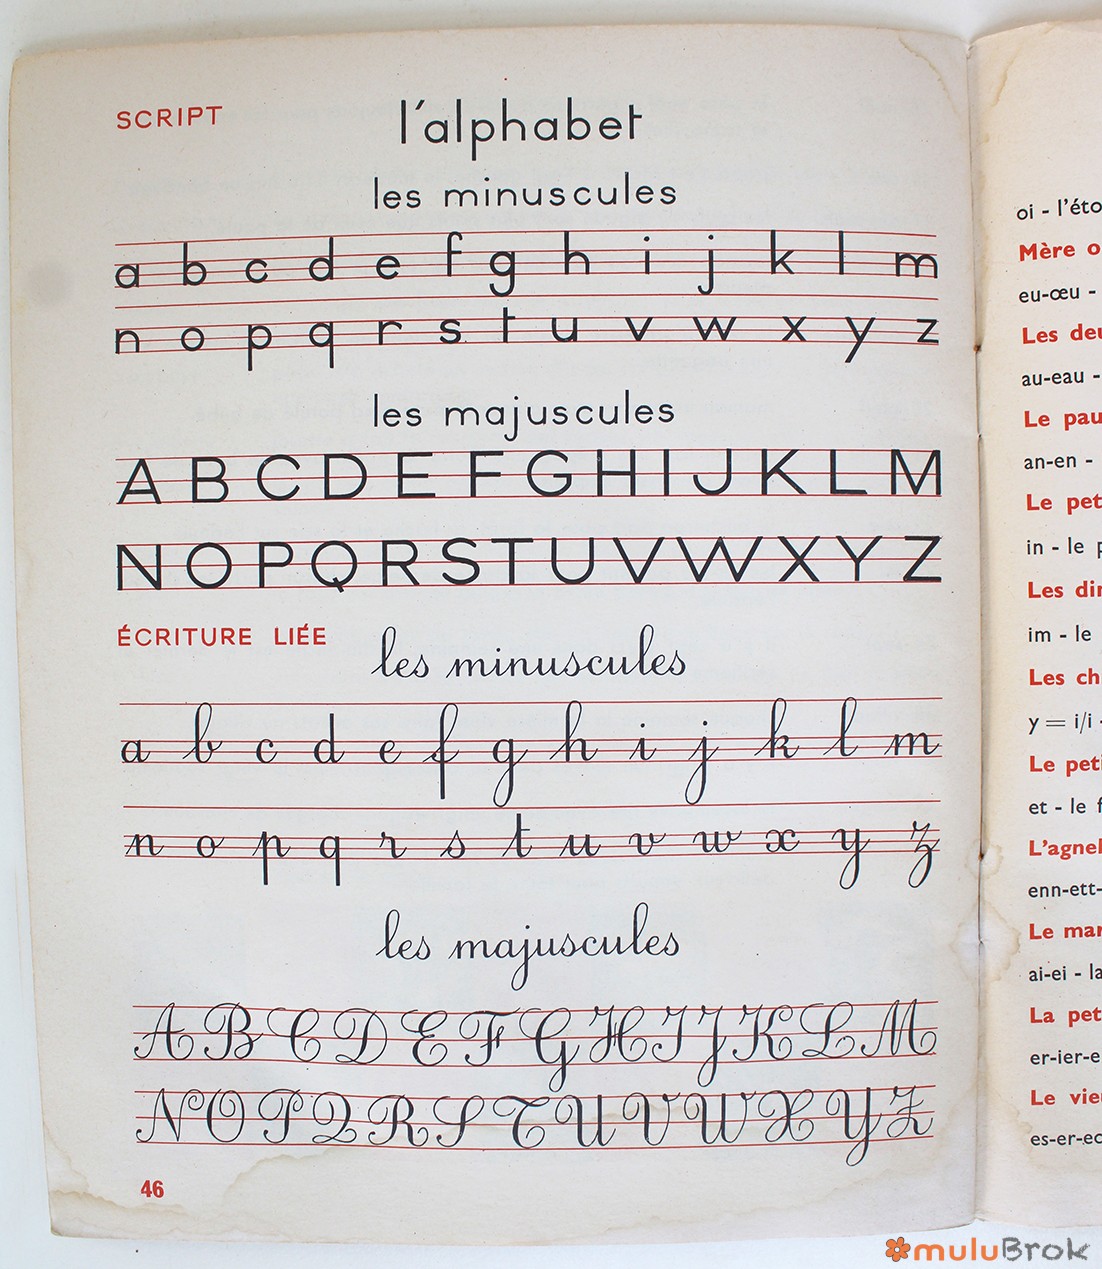 SCRIPT
l'alphabet
les minuscules
a b c d e f g h i j k l m
n o p q r s t u v w x y z
les majuscules
A B C D E F G H I J K L M
N O P Q R S T U V W X Y Z
ÉCRITURE LIÉE
les minuscules
a b c d e f g h i j k l m
n o p q r s t u v w x y z
les majuscules
A B C D E F G H I J K L M
N O P Q R S T U V W X Y Z
46
oi - l'éto
Mère o
eu-œu -
Les deu
au-eau -
Le pau
an-en -
Le pet
in - le p
Les din
im - le
Les ch
y = i/i -
Le peti
et - le f
L'agnel
enn-ett-
Le mar
ai-ei - la
La pet
er-ier-e
Le vieu
es-er-ec
muluBrok